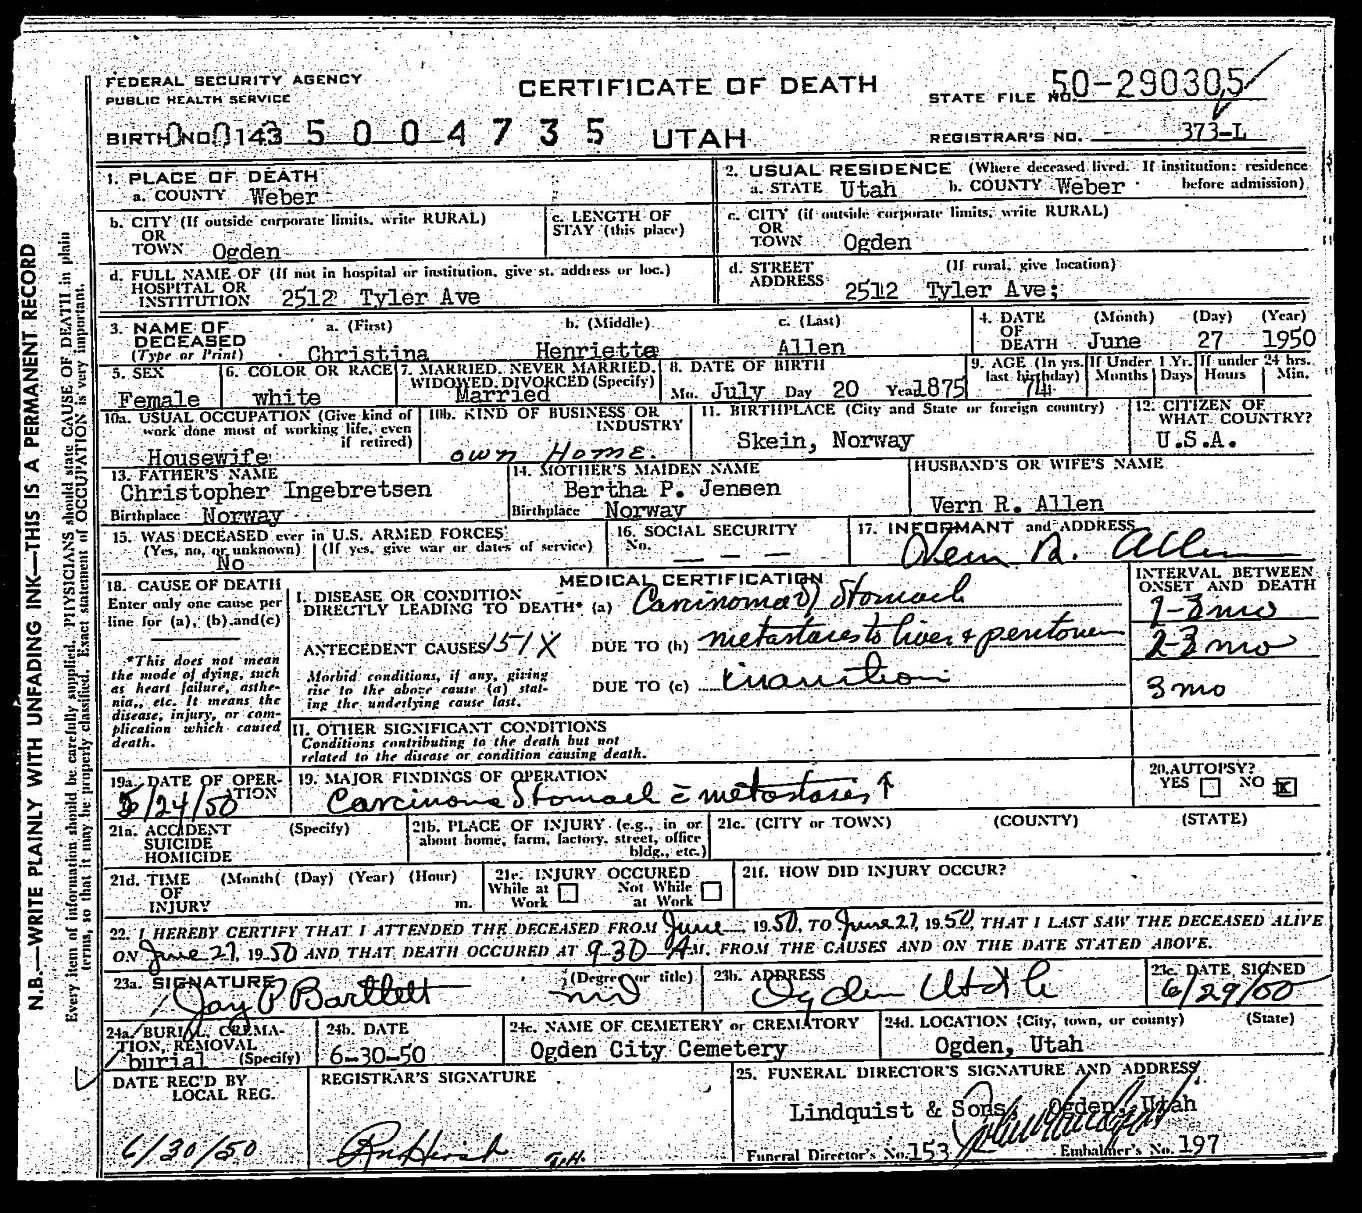 FEDERAL SECURITY AGENCY
PUBLIC HEALTH SERVICE
CERTIFICATE OF DEATH
STATE FILE NO. 50-290305
BIRTH NO. 0143 5004735 UTAH
REGISTRAR'S NO. - 373-L
N.B.—WRITE PLAINLY WITH UNFADING INK—THIS IS A PERMANENT RECORD
Every item of information should be carefully supplied. PHYSICIANS should state CAUSE OF DEATH in plain
terms, so that it may be properly classified. Exact statement of OCCUPATION is very important.
1. PLACE OF DEATH
a. COUNTY Weber
2. USUAL RESIDENCE (Where deceased lived. If institution: residence
a. STATE Utah b. COUNTY Weber before admission)
b. CITY (If outside corporate limits, write RURAL)
OR
TOWN Ogden
c. LENGTH OF
STAY (this place)
c. CITY (if outside corporate limits, write RURAL)
OR
TOWN Ogden
d. FULL NAME OF (If not in hospital or institution, give st. address or loc.)
HOSPITAL OR
INSTITUTION 2512 Tyler Ave
d. STREET (If rural, give location)
ADDRESS 2512 Tyler Ave;
3. NAME OF a. (First) b. (Middle) c. (Last)
DECEASED
(Type or Print) Christina Henrietta Allen
4. DATE (Month) (Day) (Year)
OF
DEATH June 27 1950
5. SEX
Female
6. COLOR OR RACE
white
7. MARRIED, NEVER MARRIED,
WIDOWED, DIVORCED (Specify)
Married
8. DATE OF BIRTH
Mo. July Day 20 Year 1875
9. AGE (In yrs. last birthday)
74
If Under 1 Yr.
Months Days
If under 24 hrs.
Hours Min.
10a. USUAL OCCUPATION (Give kind of
work done most of working life, even
if retired)
Housewife
10b. KIND OF BUSINESS OR
INDUSTRY
own Home.
11. BIRTHPLACE (City and State or foreign country)
Skein, Norway
12. CITIZEN OF
WHAT COUNTRY?
U.S.A.
13. FATHER'S NAME
Christopher Ingebretsen
Birthplace Norway
14. MOTHER'S MAIDEN NAME
Bertha P. Jensen
Birthplace Norway
HUSBAND'S OR WIFE'S NAME
Vern R. Allen
15. WAS DECEASED ever in U.S. ARMED FORCES?
(Yes, no, or unknown) (If yes, give war or dates of service)
No
16. SOCIAL SECURITY
No. — — —
17. INFORMANT and ADDRESS
Vern R. Allen
18. CAUSE OF DEATH
Enter only one cause per
line for (a), (b), and (c)
*This does not mean
the mode of dying, such
as heart failure, asthe-
nia, etc. It means the
disease, injury, or com-
plication which caused
death.
MEDICAL CERTIFICATION
I. DISEASE OR CONDITION
DIRECTLY LEADING TO DEATH* (a) Carcinoma of Stomach
ANTECEDENT CAUSES 151X DUE TO (b) metastases to liver & peritoneum
Morbid conditions, if any, giving
rise to the above cause (a) stat-
ing the underlying cause last.
DUE TO (c) inanition
INTERVAL BETWEEN
ONSET AND DEATH
2-3 mo
3 mo
II. OTHER SIGNIFICANT CONDITIONS
Conditions contributing to the death but not
related to the disease or condition causing death.
19a. DATE OF OPER-
ATION
5/24/50
19. MAJOR FINDINGS OF OPERATION
Carcinoma Stomach c̄ metastases ↑
20. AUTOPSY?
YES NO X
21a. ACCIDENT (Specify)
SUICIDE
HOMICIDE
21b. PLACE OF INJURY (e.g., in or
about home, farm, factory, street, office
bldg., etc.)
21c. (CITY or TOWN) (COUNTY) (STATE)
21d. TIME (Month( (Day) (Year) (Hour)
OF
INJURY m.
21e. INJURY OCCURED
While at Not While
Work at Work
21f. HOW DID INJURY OCCUR?
22. I HEREBY CERTIFY THAT I ATTENDED THE DECEASED FROM June 19 50, TO June 27, 19 50, THAT I LAST SAW THE DECEASED ALIVE
ON June 27, 19 50 AND THAT DEATH OCCURED AT 9 30 A M. FROM THE CAUSES AND ON THE DATE STATED ABOVE.
23a. SIGNATURE (Degree or title)
Jay P Bartlett MD
23b. ADDRESS
Ogden Utah
23c. DATE SIGNED
6/29/50
24a. BURIAL, CREMA-
TION, REMOVAL
burial (Specify)
24b. DATE
6-30-50
24c. NAME OF CEMETERY or CREMATORY
Ogden City Cemetery
24d. LOCATION (City, town, or county) (State)
Ogden, Utah
DATE REC'D BY
LOCAL REG.
6/30/50
REGISTRAR'S SIGNATURE
25. FUNERAL DIRECTOR'S SIGNATURE AND ADDRESS
Lindquist & Sons, Ogden, Utah
Funeral Director's No. 153 Embalmer's No. 197